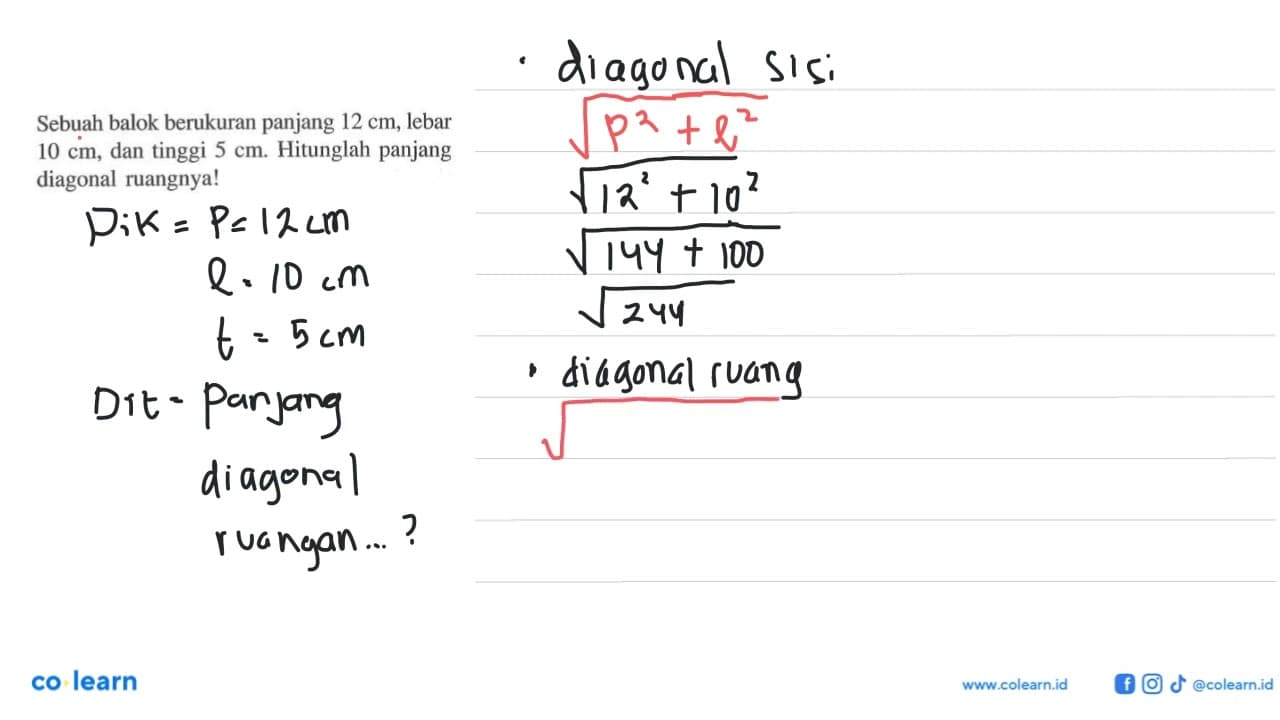 Sebuah balok berukuran panjang 12 cm, lebar
10 cm, dan tinggi 5 cm. Hitunglah panjang
diagonal ruangnya!
Dik = P = 12 cm
l = 10 cm
t = 5 cm
Dit = Panjang
diagonal
ruangan... ?
• diagonal sisi
√p² + l²
√12² + 10²
√144 + 100
√244
• diagonal ruang
√
co learn
www.colearn.id
@colearn.id